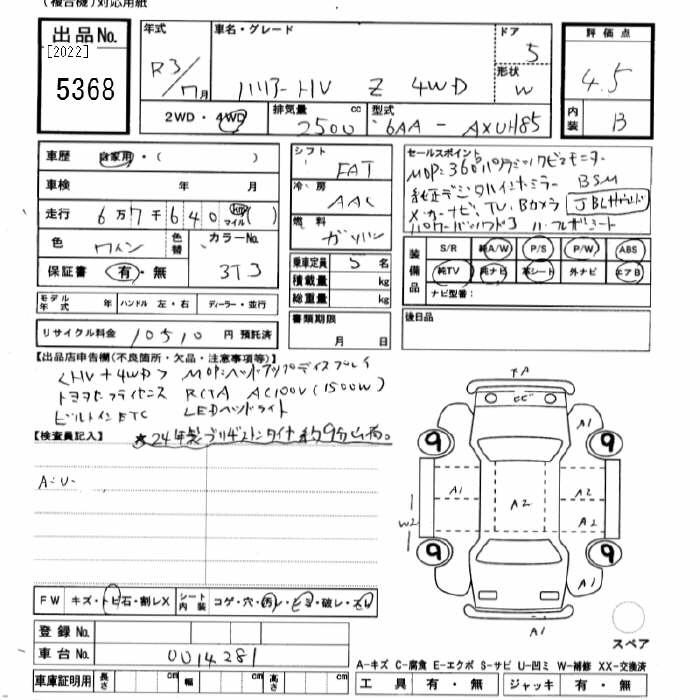 (複合機)対応用紙
出品No. [2022] 5368
年式 R3/7月
車名・グレード ハリアーHV Z 4WD
ドア 5
形状 W
2WD・4WD 排気量 2500 cc 型式 6AA - AXUH85
評価点 4.5
内装 B
車歴 自家用・( )
車検 年 月
走行 6万7千640 km マイル ( )
色 ワイン 色替 カラーNo. 3T3
保証書 有・無
モデル年式 年 ハンドル 左・右 ディーラー・並行
リサイクル料金 10510 円 預託済
シフト FAT
冷房 AAC
燃料 ガソリン
乗車定員 5 名
積載量 kg
総重量 kg
書類期限 月 日
セールスポイント
MOP:360°パノラミックビューモニター
純正デジタルインナーミラー BSM
メーカーナビ、TV、Bカメラ JBLサウンド
パワーバックドア ハーフレザーシート
装備品 S/R 純A/W P/S P/W ABS
純TV 純ナビ 革シート 外ナビ エアB
ナビ型番:
後日品
【出品店申告欄(不良箇所・欠品・注意事項等)】
<HV+4WD> MOP:ヘッドアップディスプレイ
トヨタセーフティセンス RCTA AC100V(1500W)
ビルトインETC LEDヘッドライト
【検査員記入】 ★24年製ブリヂストンタイヤ約9分山有。
A・U・
FW キズ・トビ石・割レX シート内装 コゲ・穴・汚レ・シミ・破レ・スレ
登録No.
車台No. 0014281
車庫証明用 長さ cm 幅 cm 高さ cm
A
A1
9 9
A1 A2 A2
W2 A2
9 9
A1
A1
スペア
A-キズ C-腐食 E-エクボ S-サビ U-凹ミ W-補修 XX-交換済
工具 有・無 ジャッキ 有・無